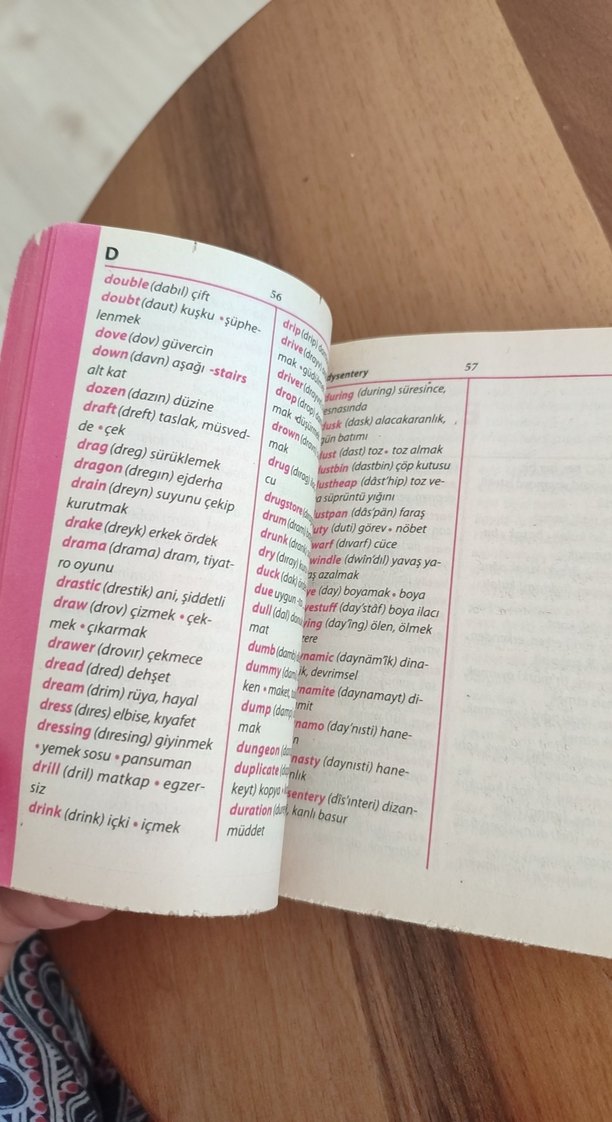 D
56
double (dabıl) çift
doubt (daut) kuşku •şüphe-
lenmek
dove (dov) güvercin
down (davn) aşağı -stairs
alt kat
dozen (dazın) düzine
draft (dreft) taslak, müsved-
de •çek
drag (dreg) sürüklemek
dragon (dregın) ejderha
drain (dreyn) suyunu çekip
kurutmak
drake (dreyk) erkek ördek
drama (drama) dram, tiyat-
ro oyunu
drastic (drestik) ani, şiddetli
draw (drov) çizmek •çek-
mek •çıkarmak
drawer (drovır) çekmece
dread (dred) dehşet
dream (drim) rüya, hayal
dress (dıres) elbise, kıyafet
dressing (dıresing) giyinmek
•yemek sosu •pansuman
drill (dril) matkap •egzer-
siz
drink (drink) içki •içmek
drip (drip)
drive
mak
driver
drop (drop)
mak
drown
mak
drug (dırag)
cu
drugstore
drum (dram)
drunk
dry (dıray)
duck (dak)
due uygun
dull (dal)
mat
dumb
dummy
ken •maket,
dump (damp)
mak
dungeon
duplicate
keyt) kopya
duration
müddet
dysentery
57
during (during) süresince,
esnasında
dusk (dask) alacakaranlık,
gün batımı
dust (dast) toz• toz almak
dustbin (dastbin) çöp kutusu
dustheap (dâst'hip) toz ve-
a süprüntü yığını
dustpan (dâs'pân) faraş
uty (duti) görev• nöbet
warf (dıvarf) cüce
windle (dwîn'dıl) yavaş ya-
aş azalmak
ye (day) boyamak• boya
yestuff (day'stâf) boya ilacı
ying (day'îng) ölen, ölmek
zere
namic (daynäm'îk) dina-
ik, devrimsel
namite (daynamayt) di-
mit
namo (day'nısti) hane-
n
nasty (daynısti) hane-
nlık
sentery (dîs'ınteri) dizan-
, kanlı basur